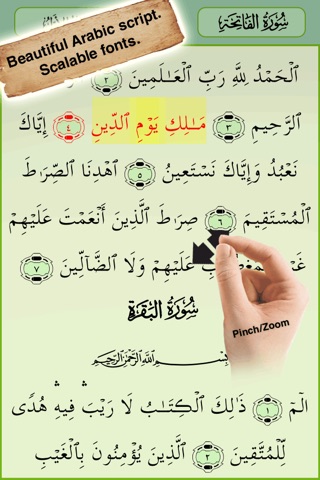 سُورَةُ الفَاتِحَةِ
Beautiful Arabic script.
Scalable fonts.
ٱلْحَمْدُ لِلَّهِ رَبِّ ٱلْعَـٰلَمِينَ ٢
ٱلرَّحِيمِ ٣ مَـٰلِكِ يَوْمِ ٱلدِّينِ ٤ إِيَّاكَ
نَعْبُدُ وَإِيَّاكَ نَسْتَعِينُ ٥ ٱهْدِنَا ٱلصِّرَٰطَ
ٱلْمُسْتَقِيمَ ٦ صِرَٰطَ ٱلَّذِينَ أَنْعَمْتَ عَلَيْهِمْ
عَلَيْهِمْ وَلَا ٱلضَّآلِّينَ ٧
Pinch/Zoom
سُورَةُ البَقَرَةِ
بِسْمِ ٱللَّهِ ٱلرَّحْمَٰنِ ٱلرَّحِيمِ
الٓمٓ ١ ذَٰلِكَ ٱلْكِتَـٰبُ لَا رَيْبَ ۛ فِيهِ ۛ هُدًى
لِّلْمُتَّقِينَ ٢ ٱلَّذِينَ يُؤْمِنُونَ بِٱلْغَيْبِ